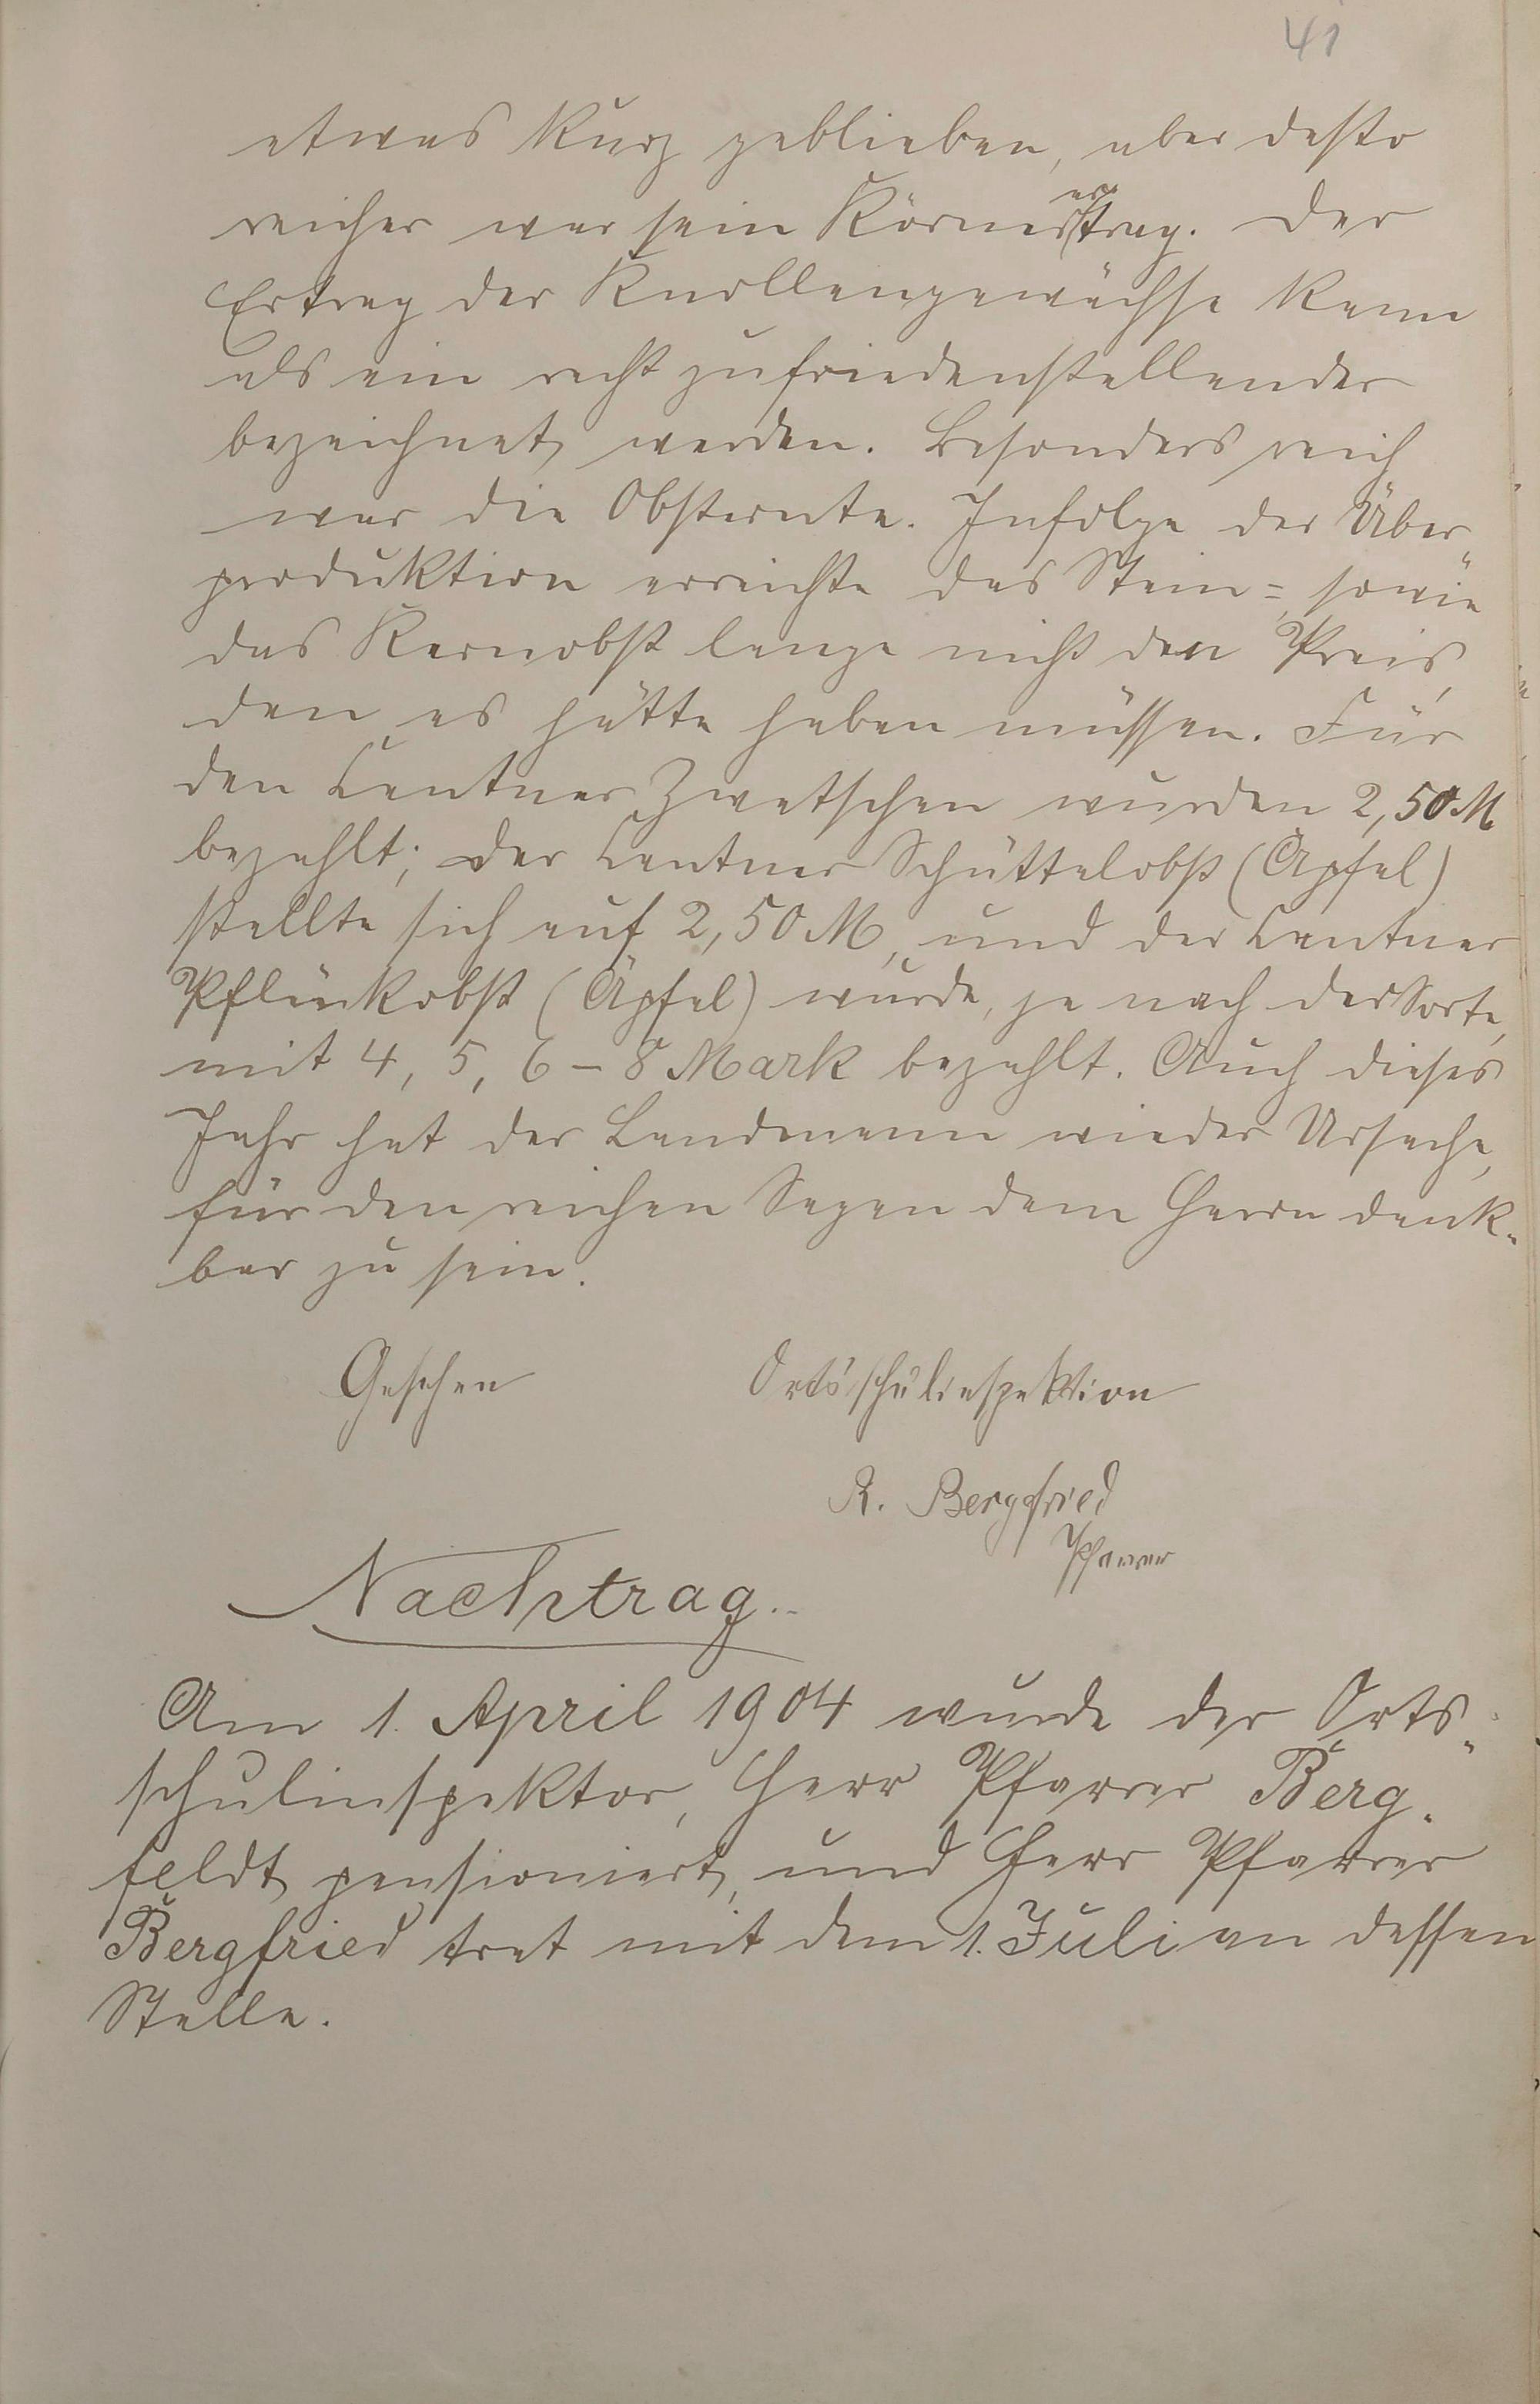 41
etwas kurz geblieben, aber desto
reicher war sein Körnerertrag. Der
Ertrag der Knollengewächse kann
als ein recht zufriedenstellender
bezeichnet werden. Besonders reich
war die Obsternte. Infolge der Über-
produktion erreichte das Stein= sowie
das Kernobst lange nicht den Preis,
den es hätte haben müssen. Für
den Centner Zwetschen wurden 2,50 M
bezahlt; der Centner Schüttelobst (Äpfel)
stellte sich auf 2,50 M, und der Centner
Pflückobst (Äpfel) wurde, je nach der Sorte,
mit 4, 5, 6 – 8 Mark bezahlt. Auch dieses
Jahr hat der Landmann wieder Ursache,
für den reichen Segen dem Herrn dank-
bar zu sein.
Gesehen Ortsschulinspektion
R. Bergfried
Pfarrer
Nachtrag.
Am 1. April 1904 wurde der Orts-
schulinspektor, Herr Pfarrer Berg-
feldt pensioniert, und Herr Pfarrer
Bergfried trat mit dem 1. Juli an dessen
Stelle.